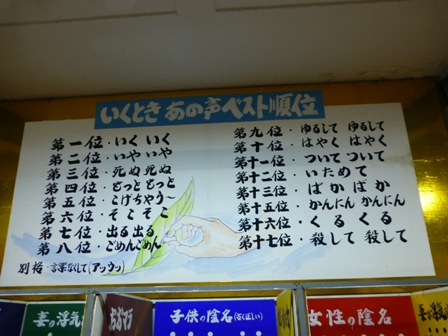 いくとき あの声ベスト順位
第一位・いく いく
第二位・いや いや
第三位・死ぬ 死ぬ
第四位・もっと もっと
第五位・こげちゃう～
第六位・そこ そこ
第七位・出る 出る
第八位・ごめん ごめん
別格 言葉なしで(アッウッ)
第九位・ゆるして ゆるして
第十位・はやく はやく
第十一位・ついて ついて
第十二位・いためて
第十三位・ばか ばか
第十五位・かんにん かんにん
第十六位・くる くる
第十七位・殺して 殺して
妻の浮気
子供の陰名
女性の陰名